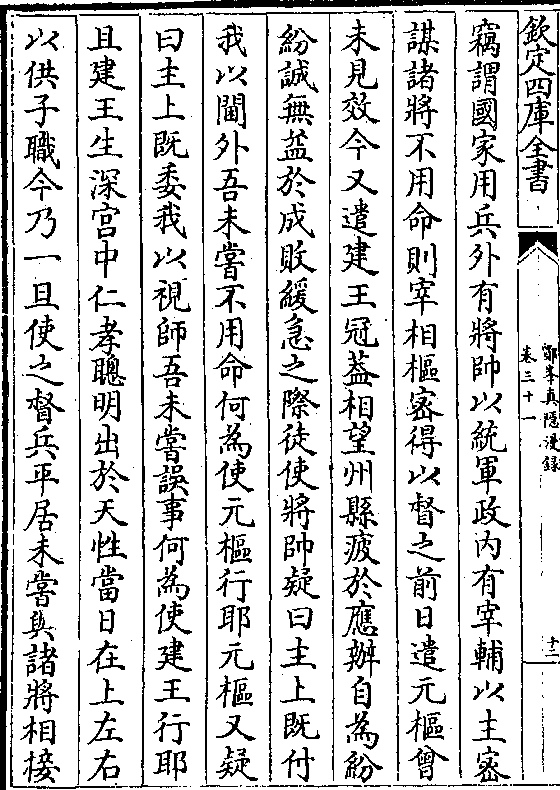 欽定四庫全書
鄮峯真隱漫錄
卷三十一
十二
竊謂國家用兵外有將帥以統軍政内有宰輔以主宻
謀諸將不用命則宰相樞宻得以督之前日遣元樞曾
未見效今又遣建王冠葢相望州縣疲於應辦自為紛
紛誠無益於成敗緩急之際徒使將帥疑曰主上既付
我以閫外吾未嘗不用命何為使元樞行耶元樞又疑
曰主上既委我以視師吾未嘗誤事何為使建王行耶
且建王生深宫中仁孝聰明出於天性當日在上左右
以供子職今乃一旦使之督兵平居未嘗與諸將相接